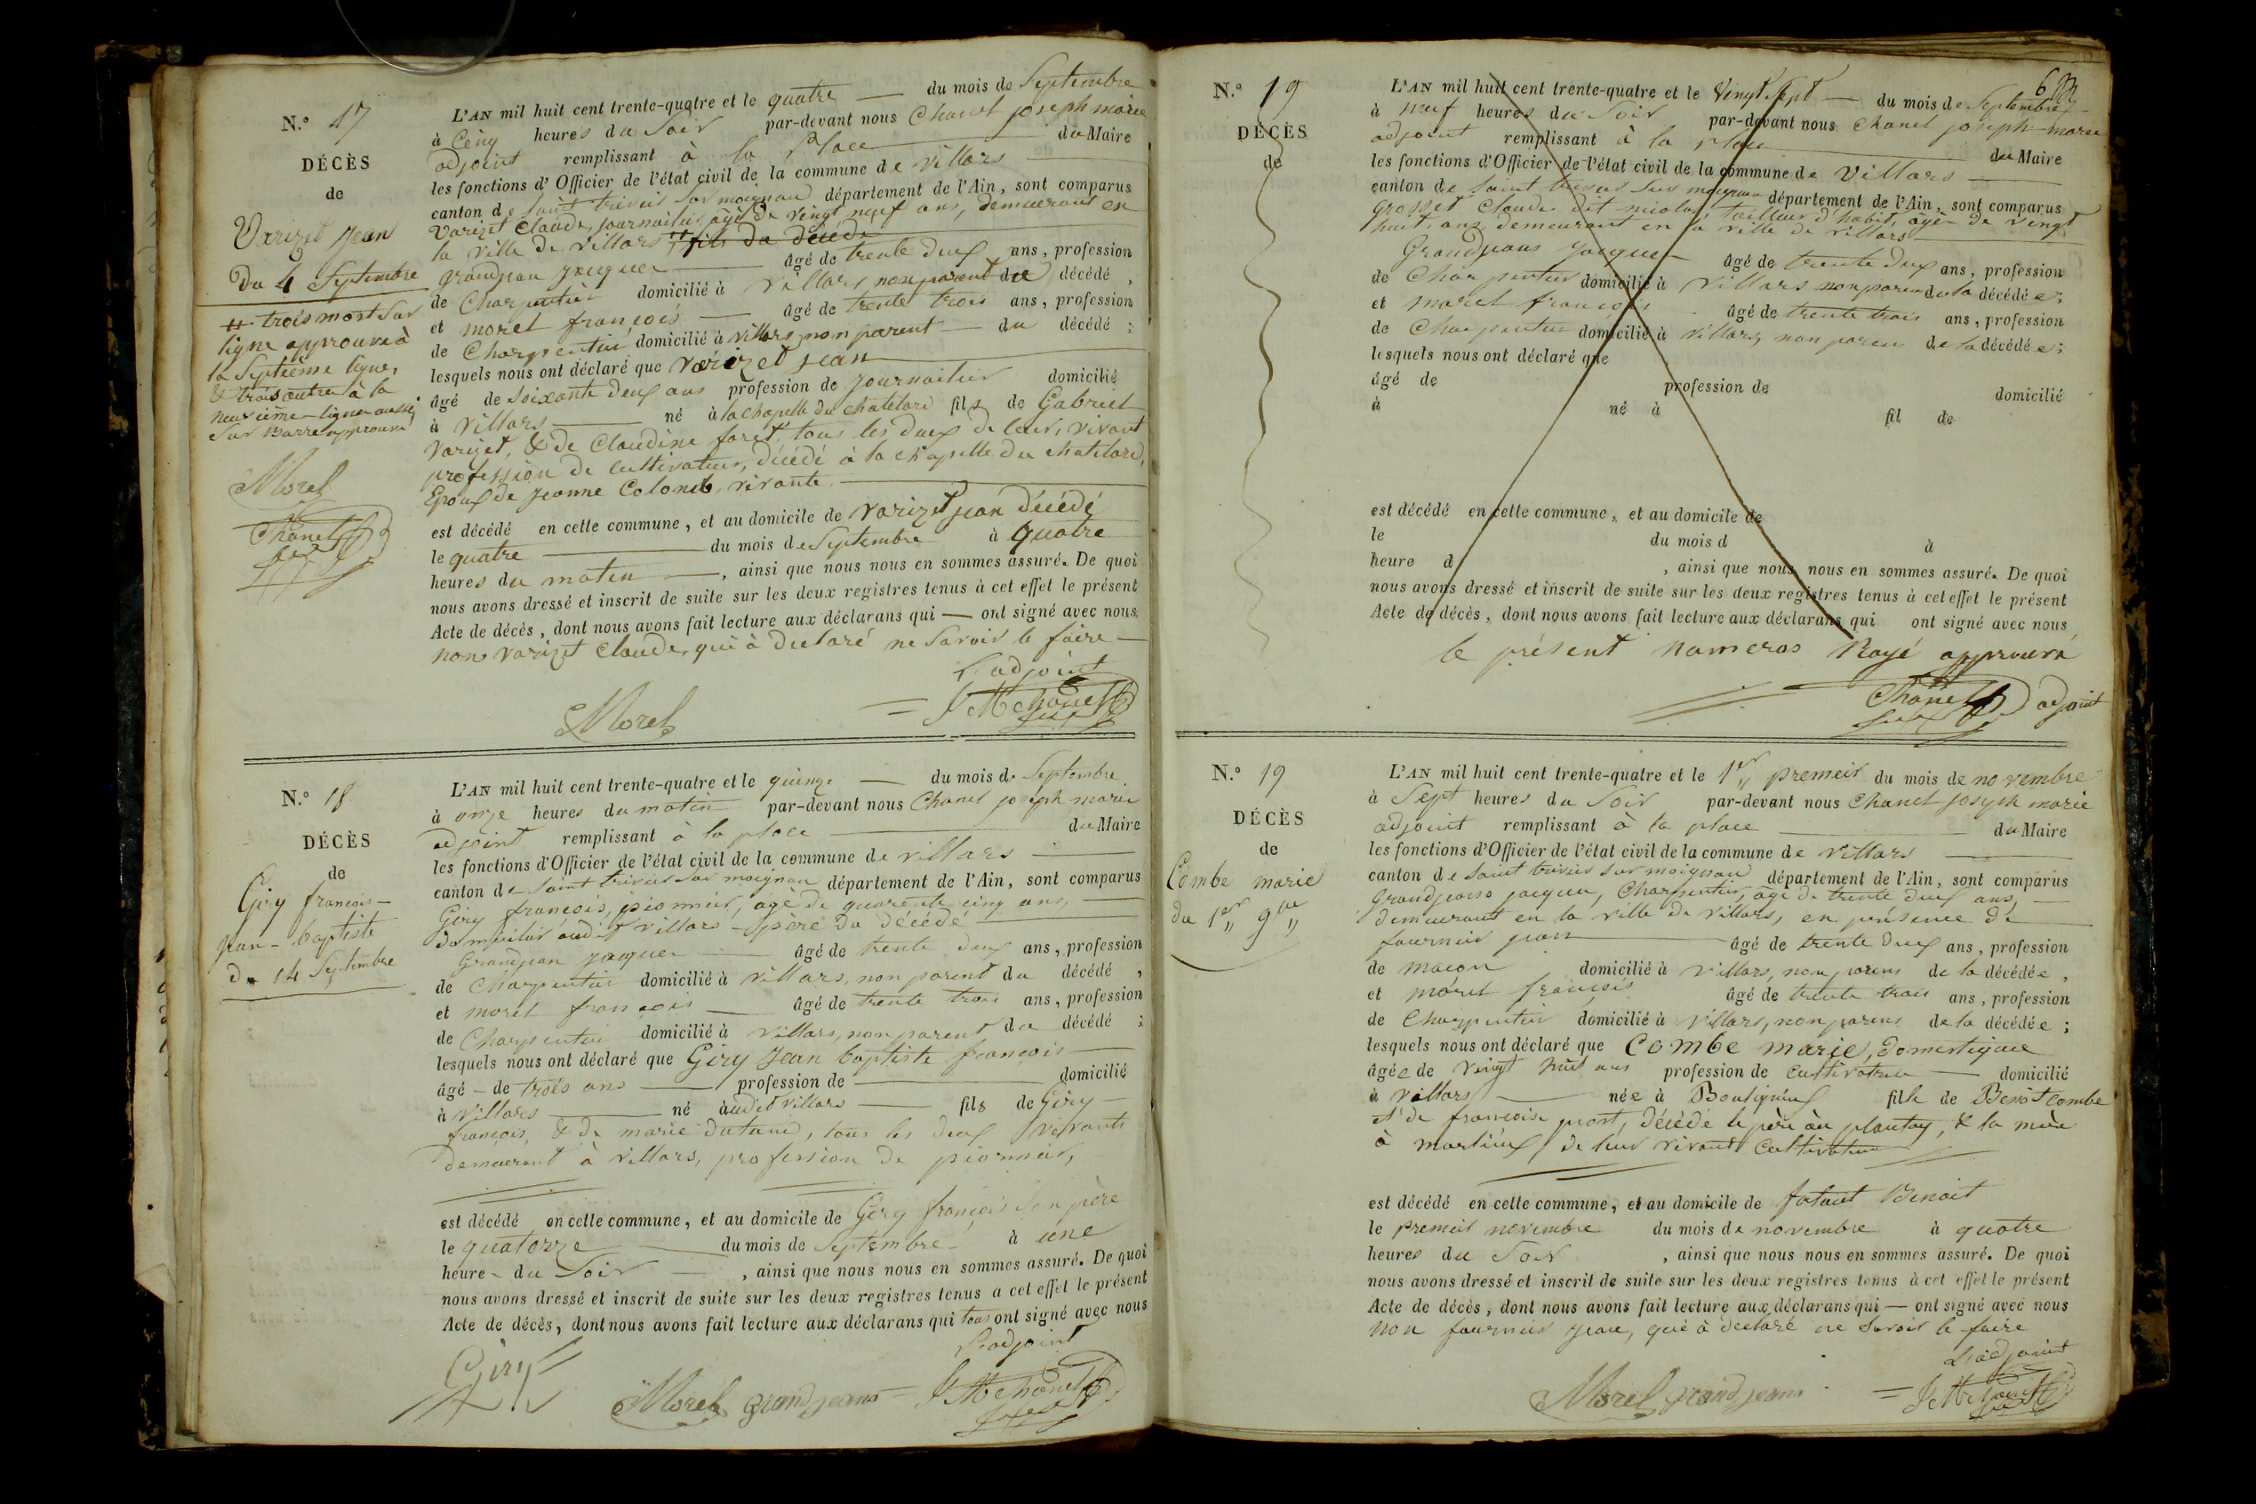 N.o 17
DÉCÈS
de
Varizet Jean
Du 4 Septembre
trois mots sur
ligne approuvé à
la Septième ligne,
& trois autre à la
neuvième ligne aussi
Sur Barre approuvé
Morel
Chanel
L'AN mil huit cent trente-quatre et le quatre du mois de Septembre
à Cinq heures du Soir par-devant nous Chanel joseph marie
adjoint remplissant à la place du Maire
les fonctions d'Officier de l'état civil de la commune de villars
canton de Saint trivier Sur moignan département de l'Ain, sont comparus
Varizet Claude, journalier, âgé de vingt neuf ans, demeurant en
la ville de villars, fils du décédé
grandjean jacques âgé de trente deux ans, profession
de Charpentier domicilié à villars non parent du décédé,
et morel françois âgé de trente trois ans, profession
de Charpentier domicilié à villars non parent du décédé;
lesquels nous ont déclaré que varizet jean
âgé de soixante deux ans profession de journalier domicilié
à villars né à la chapelle du chatelard fils de Gabriel
varizet, & de Claudine foret, tous les deux de leur, vivant
profession de cultivateur, décédé à la chapelle du chatelard,
Epoux de jeanne Colomb, vivante.
est décédé en cette commune, et au domicile de varizet jean décédé
le quatre du mois de Septembre à quatre
heures du matin, ainsi que nous nous en sommes assuré. De quoi
nous avons dressé et inscrit de suite sur les deux registres tenus à cet effet le présent
Acte de décès, dont nous avons fait lecture aux déclarans qui ont signé avec nous
non varizet Claude, qui à déclaré ne Savoir le faire
L'adjoint
Morel J M Chanel
N.o 18
DÉCÈS
de
Giry françois
jean-baptiste
du 14 Septembre
L'AN mil huit cent trente-quatre et le quinze du mois de Septembre
à onze heures du matin par-devant nous Chanel joseph marie
adjoint remplissant à la place du Maire
les fonctions d'Officier de l'état civil de la commune de villars
canton de Saint trivier sur moignan département de l'Ain, sont comparus
Giry françois, pionnier, âgé de quarante cinq ans,
domicilié audit villars père du décédé
Grandjean jacques âgé de trente deux ans, profession
de Charpentier domicilié à villars, non parent du décédé,
et morel françois âgé de trente trois ans, profession
de Charpentier domicilié à villars, non parent du décédé;
lesquels nous ont déclaré que Giry Jean baptiste françois
âgé de trois ans profession de domicilié
à villars né audit villars fils de Giry
françois & de marie, tous les deux vivants
demeurant à villars, profession de pionnier,
est décédé en cette commune, et au domicile de Giry françois son père
le quatorze du mois de Septembre à une
heure du Soir, ainsi que nous nous en sommes assuré. De quoi
nous avons dressé et inscrit de suite sur les deux registres tenus a cet effet le présent
Acte de décès, dont nous avons fait lecture aux déclarans qui tous ont signé avec nous
L'adjoint
Giry Morel grandjeans J M Chanel
N.o 19
DÉCÈS
de
L'AN mil huit cent trente-quatre et le vingt Sept du mois de Septembre
à neuf heures du Soir par-devant nous Chanel joseph marie
adjoint remplissant à la place du Maire
les fonctions d'Officier de l'état civil de la commune de villars
canton de Saint trivier Sur moignan département de l'Ain, sont comparus
Grosset Claude dit nicolas, tailleur d'habit, âgé de vingt
huit ans demeurant en la ville de villars
Grandjeans Jacques âgé de trente deux ans, profession
de Charpentier domicilié à villars non parent de la décédée;
et morel françois âgé de trente trois ans, profession
de Charpentier domicilié à villars, non parent de la décédée;
lesquels nous ont déclaré que
âgé de profession de domicilié
à né à fil de
est décédé en cette commune, et au domicile de
le du mois d à
heure d , ainsi que nous nous en sommes assuré. De quoi
nous avons dressé et inscrit de suite sur les deux registres tenus à cet effet le présent
Acte de décès, dont nous avons fait lecture aux déclarans qui ont signé avec nous
le présent numeros Rayé approuvé
Chanel adjoint
N.o 19
DÉCÈS
de
Combe marie
du 1er 9bre
L'AN mil huit cent trente-quatre et le 1er premier du mois de novembre
à Sept heures du Soir par-devant nous Chanel joseph marie
adjoint remplissant à la place du Maire
les fonctions d'Officier de l'état civil de la commune de villars
canton de Saint trivier sur moignan département de l'Ain, sont comparus
Grandjeans jacques, Charpentier, âgé de trente deux ans,
demeurant en la ville de villars, en présence de
fournier jean âgé de trente deux ans, profession
de maçon domicilié à villars, non parens de la décédée,
et morel françois âgé de trente trois ans, profession
de Charpentier domicilié à villars, non parens de la décédée;
lesquels nous ont déclaré que Combe marie, Domestique
âgée de vingt huit ans profession de cultivatrice domicilié
à villars née à Bouligneux fille de Benoit Combe
et de françoise, décédé le père au plantay, & la mère
à marlieux de leur vivant Cultivateur
est décédé en cette commune, et au domicile de Benoit
le premier novembre du mois de novembre à quatre
heures du Soir, ainsi que nous nous en sommes assuré. De quoi
nous avons dressé et inscrit de suite sur les deux registres tenus à cet effet le présent
Acte de décès, dont nous avons fait lecture aux déclarans qui ont signé avec nous
non fournier jean, qui à déclaré ne Savoir le faire
L'adjoint
Morel grandjeans J M Chanel